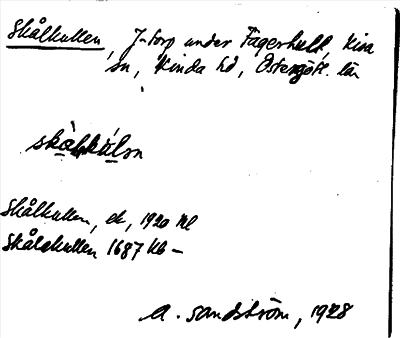 Skålkullen, J-torp under Fagerhult, Kisa
sn, Kinda hd, Östergötl. län
skàlkúlsn
Skålkullen, ek, 1920 Kl
Skålakullen 1687 Kb –
A. Sandström, 1928